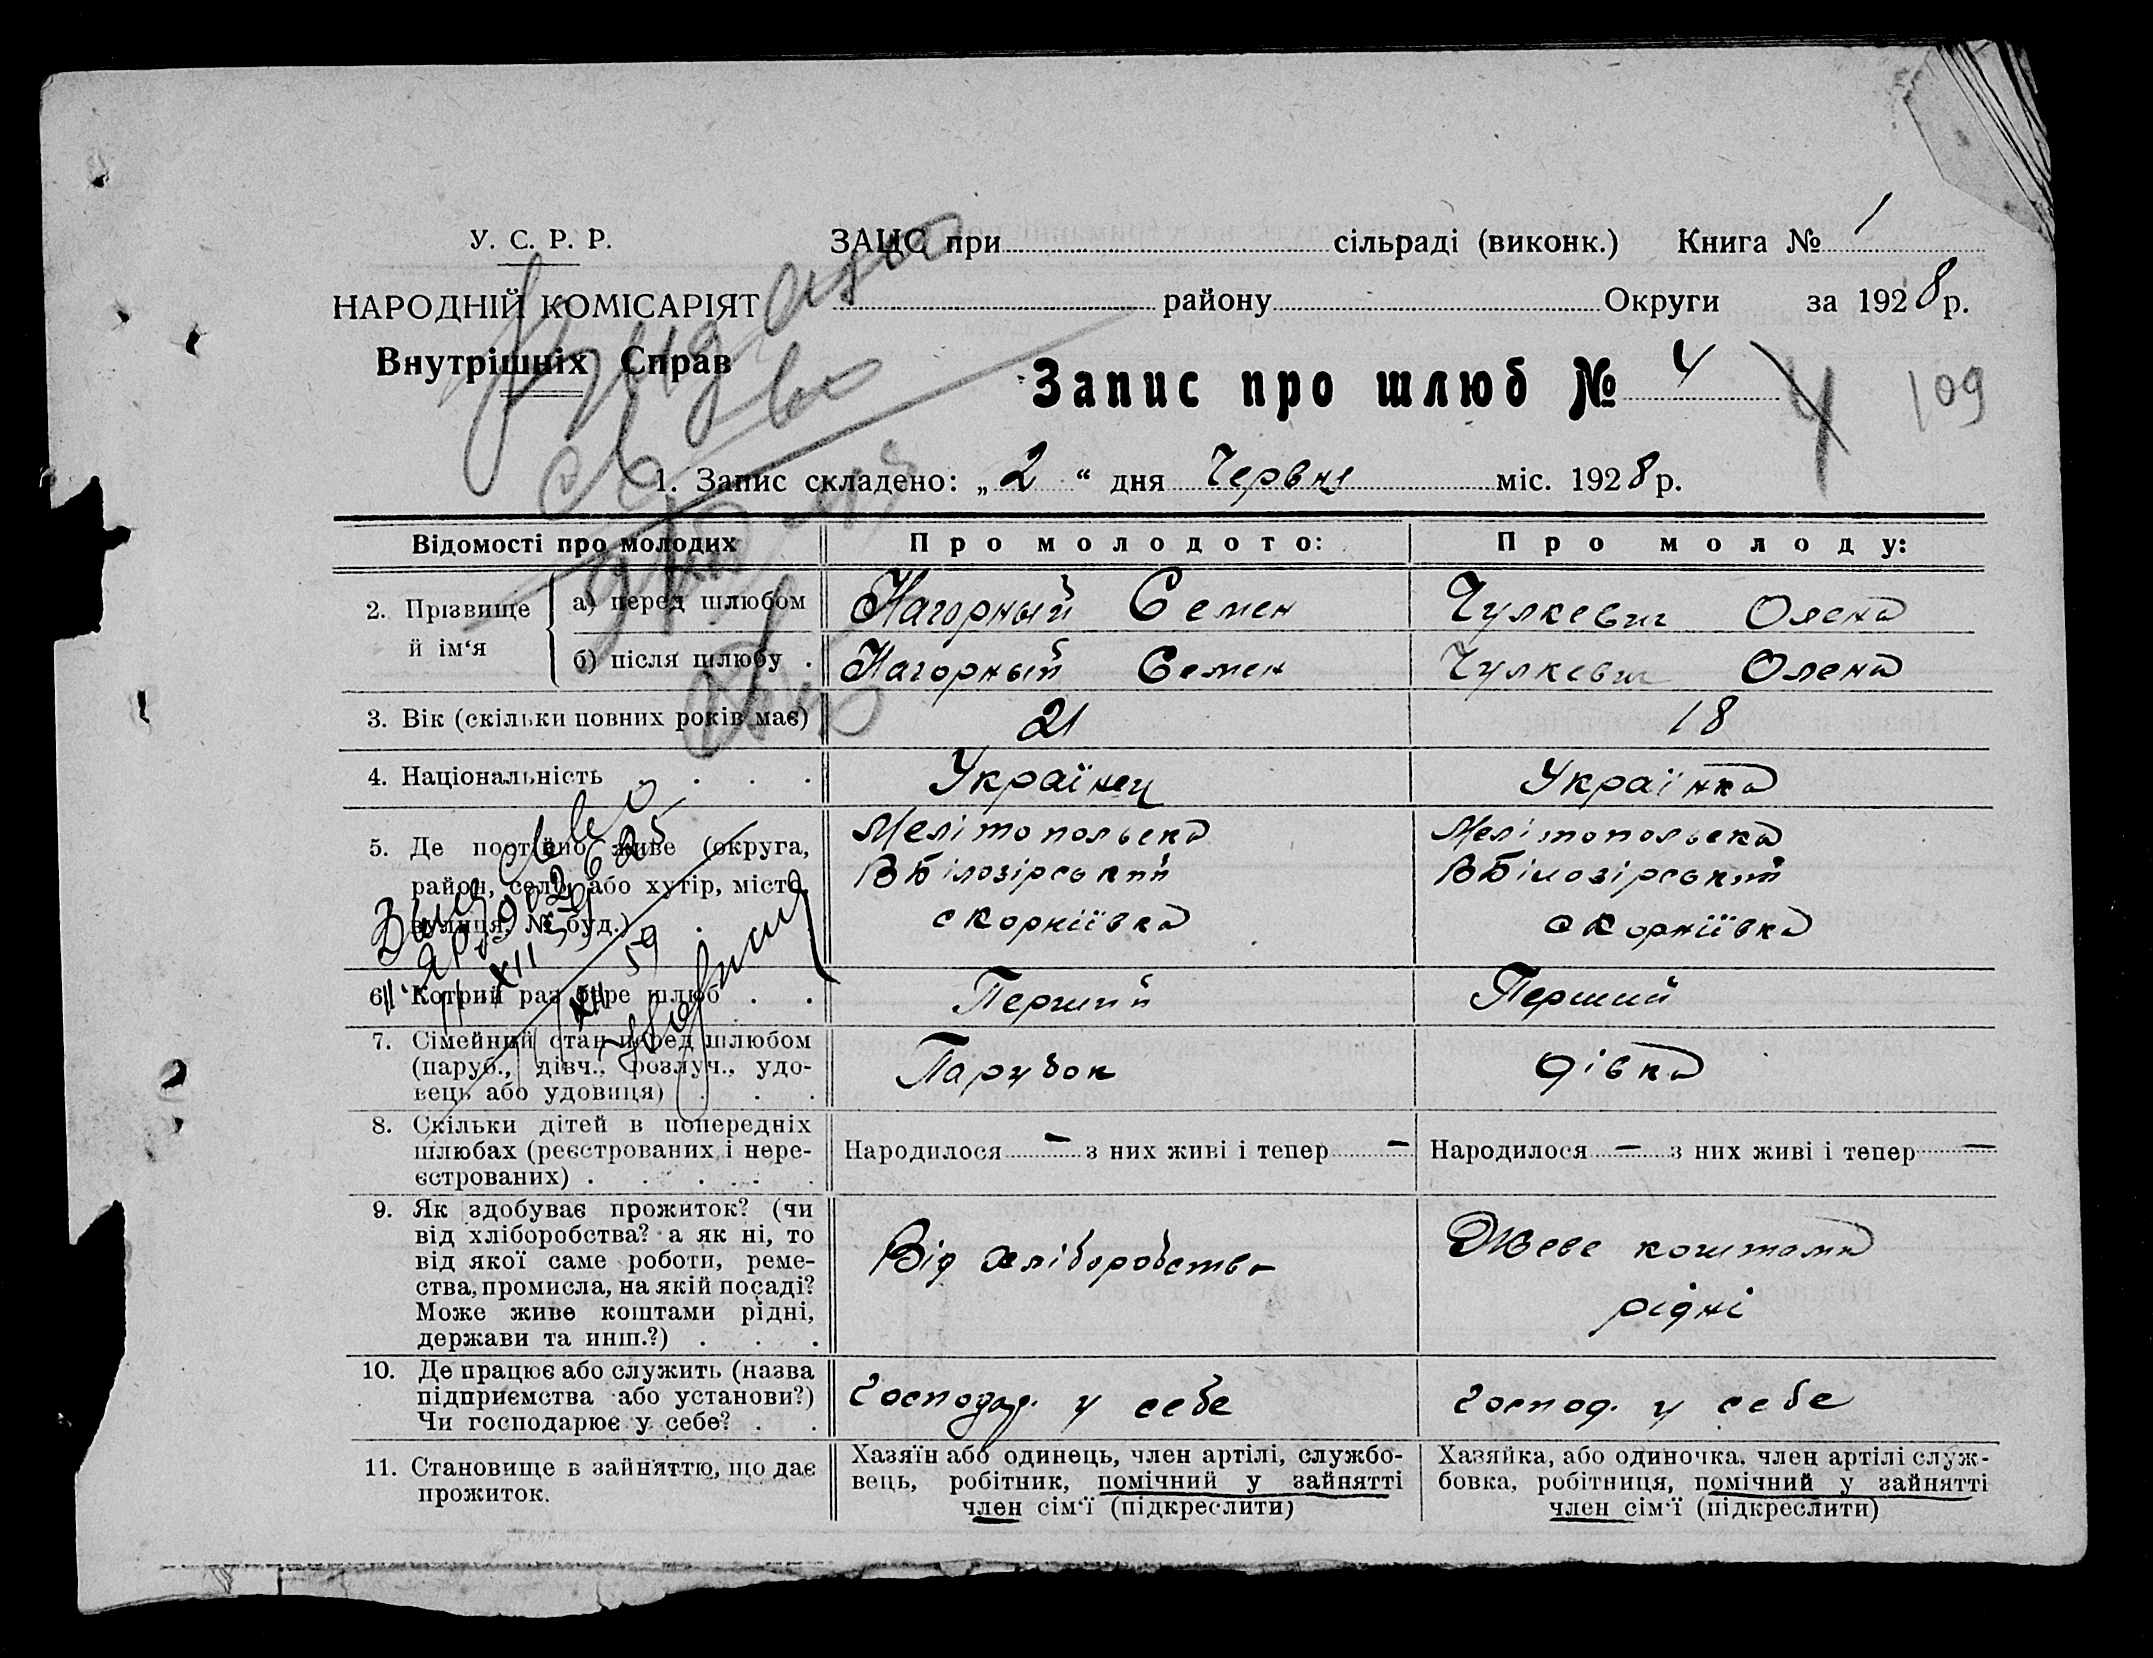 У. С. Р. Р.
ЗАЦС при сільраді (виконк.) Книга № 1
НАРОДНІЙ КОМІСАРІЯТ
району Округи за 1928 р.
Внутрішніх Справ
Запис про шлюб № 4
4 109
1. Запис складено: „2“ дня Червня міс. 1928 р.
Відомості про молодих
Про молодого:
Про молоду:
2. Прізвище й ім‘я
а) перед шлюбом
Нагорный Семен
Чулкевич Олена
б) після шлюбу .
Нагорный Семен
Чулкевич Олена
3. Вік (скільки повних років має)
21
18
4. Національність . . . .
Українец
Українка
5. Де постійно живе (округа,
район, село, або хутір, місто,
вулиця, № буд.) .
Мелітопольска
ВБілозірський
с Корніївка
Мелітопольска
ВБілозірський
с Корніївка
6. Котрий раз бере шлюб . .
Перший
Перший
7. Сімейний стан перед шлюбом
(паруб., дівч., розлуч., удо-
вець або удовиця) . . .
Парубок
дівка
8. Скільки дітей в попередніх
шлюбах (реєстрованих і нере-
єстрованих) . . . . .
Народилося — з них живі і тепер —
Народилося — з них живі і тепер —
9. Як здобуває прожиток? (чи
від хліборобства? а як ні, то
від якої саме роботи, реме-
ства, промисла, на якій посаді?
Може живе коштами рідні,
держави та инш.?) . . .
Від хліборобства
Живе коштами
рідні
10. Де працює або служить (назва
підприємства або установи?)
Чи господарює у себе? . .
Господар. у себе
Господ. у себе
11. Становище в зайняттю, що дає
прожиток.
Хазяїн або одинець, член артілі, службо-
вець, робітник, помічний у зайнятті
член сім‘ї (підкреслити)
Хазяйка, або одиночка, член артілі служ-
бовка, робітниця, помічний у зайнятті
член сім‘ї (підкреслити)